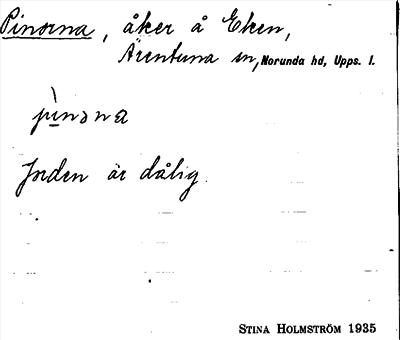 Pinorna, åker å Eken,
Ärentuna sn, Norunda hd, Upps. l.
pìnɔnɑ
Jorden är dålig.
STINA HOLMSTRÖM 1935